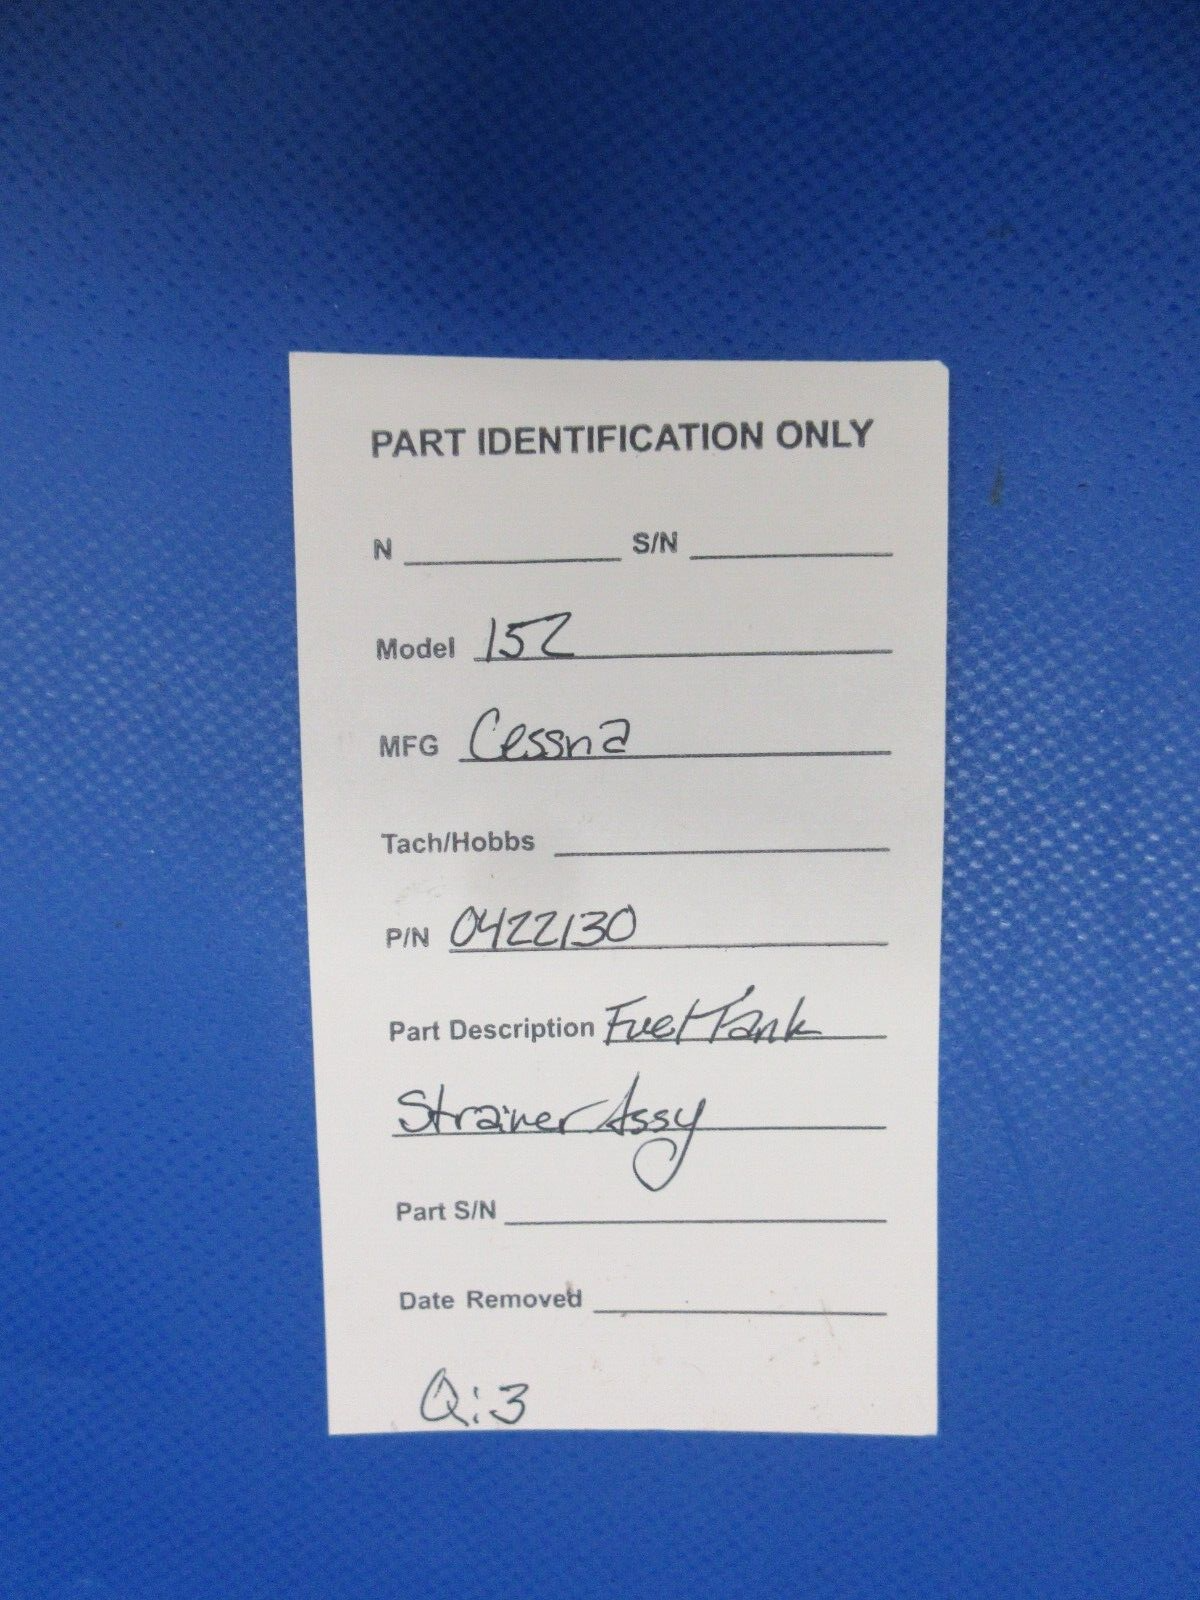 PART IDENTIFICATION ONLY
N S/N
Model 152
MFG Cessna
Tach/Hobbs
P/N 0422130
Part Description Fuel Tank
Strainer Assy
Part S/N
Date Removed
Q:3